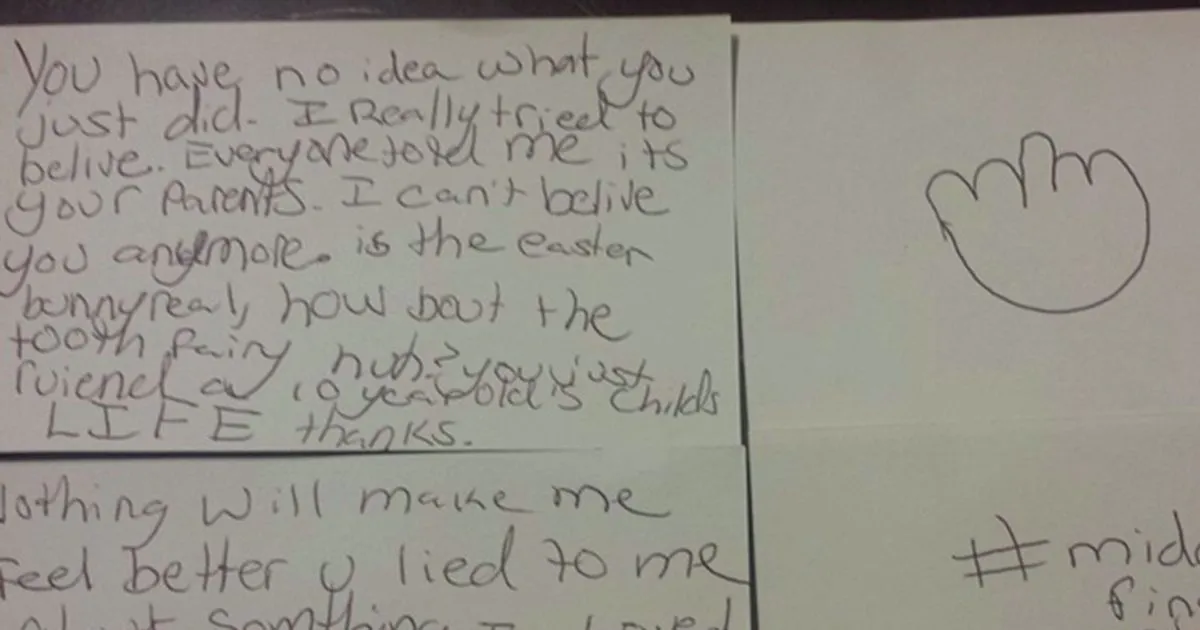 You have no idea what you
just did. I Really tried to
belive. Everyone told me its
your Parents. I can't belive
you anymore. is the easter
bunny real, how bout the
tooth fairy huh? you just
ruiend a 10 year old's childs
LIFE thanks.
Nothing will make me
feel better u lied to me
something I loved
#midd
fin